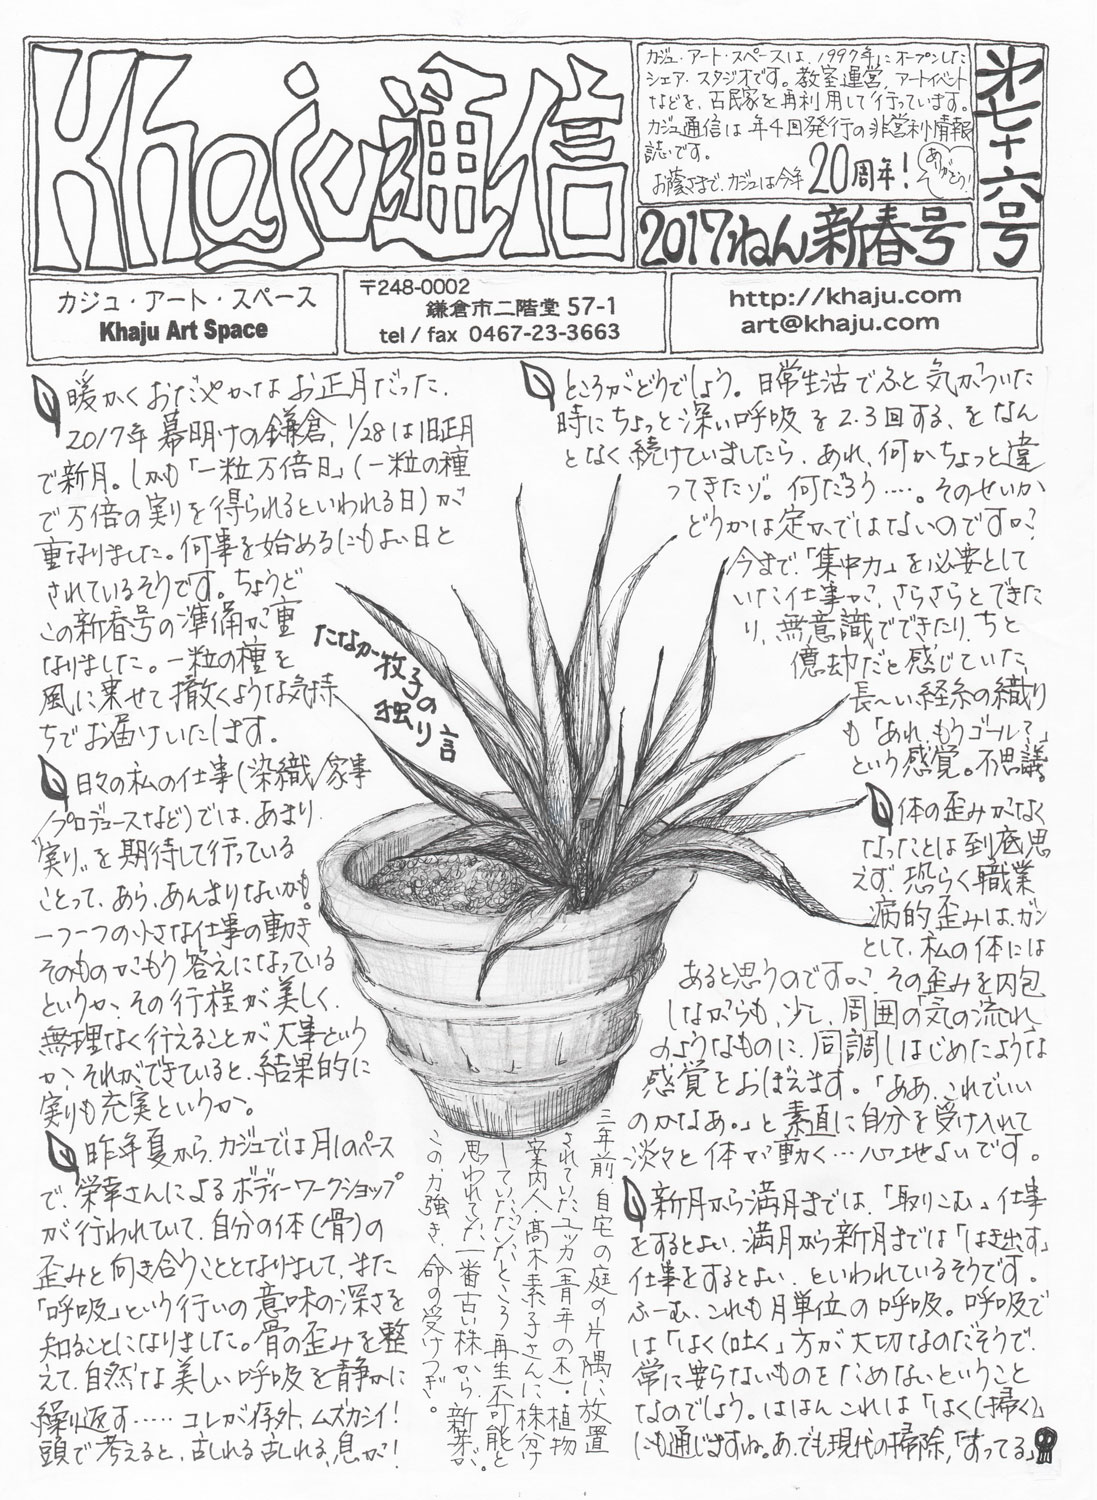 Khaju通信
カジュ・アート・スペースは、1997年にオープンした
シェア・スタジオです。教室運営、アートイベント
などを、古民家を再利用して行っています。
カジュ通信は年4回発行の非営利情報
誌です。
お蔭さまで、カジュは今年20周年!
ありがとう!
2017ねん新春号
第七十六号
カジュ・アート・スペース
Khaju Art Space
〒248-0002
鎌倉市二階堂 57-1
tel / fax 0467-23-3663
http://khaju.com
art@khaju.com
暖かくおだやかなお正月だった。
2017年幕明けの鎌倉、1/28は旧正月
で新月。しかも「一粒万倍日」(一粒の種
で万倍の実りを得られるといわれる日)が
重なりました。何事を始めるにもよい日と
されているそうです。ちょうど
この新春号の準備が重
なりました。一粒の種を
風に乗せて撒くような気持
ちでお届けいたします。
日々の私の仕事(染織/家事
/プロデュースなど)では、あまり
“実り”を期待して行っている
ことって、あら、あんまりないかも。
一つ一つの小さな仕事の動き
そのものがもう答えになっている
というか、その行程が美しく、
無理なく行えることが大事という
か、それができていると、結果的に
実りも充実というか。
昨年夏から、カジュでは月1のペース
で、栄幸さんによるボディーワークショップ
が行われていて、自分の体(骨)の
歪みと向き合うこととなりまして、また
「呼吸」という行いの意味の深さを
知ることになりました。骨の歪みを整
えて、自然な美しい呼吸を静かに
繰り返す……コレが存外、ムズカシイ!
頭で考えると、乱れる乱れる、息が!
たなか牧子の
独り言
ところがどうでしょう。日常生活でふと気がついた
時にちょっと深い呼吸を2.3回する、をなん
となく続けていましたら、あれ、何かちょっと違
ってきたゾ。何だろう……。そのせいか
どうかは定かではないのですが、
今まで、「集中力」を必要として
いた仕事が、さらさらとできた
り、無意識でできたり、ちと
億劫だと感じていた、
長〜い経糸の織り
も「あれ、もうゴール?」
という感覚。不思議。
体の歪みがなく
なったとは到底思
えず、恐らく職業
病的歪みは、ガン
として、私の体には
あると思うのですが、その歪みを内包
しながらも、少し、周囲の「気の流れ」
のようなものに、同調しはじめたような
感覚をおぼえます。「ああ、これでいい
のかなあ。」と素直に自分を受け入れて
淡々と体が動く…心地よいです。
新月から満月までは、「取りこむ」仕事
をするとよい、満月から新月までは「はき出す」
仕事をするとよい、といわれているそうです。
ふーむ、これも月単位の呼吸。呼吸で
は「はく(吐く)」方が大切なのだそうで、
常に要らないものをためないということ
なのでしょう。ははん、これは「はく(掃く)」
にも通じますね。あ、でも現代の掃除、「すってる」
三年前、自宅の庭の片隅に放置
されていたユッカ(青年の木)。植物
案内人・髙木素子さんに株分け
していただいたところ、再生不可能と
思われていた一番古い株から、新芽が。
この力強き、命の受けつぎ。